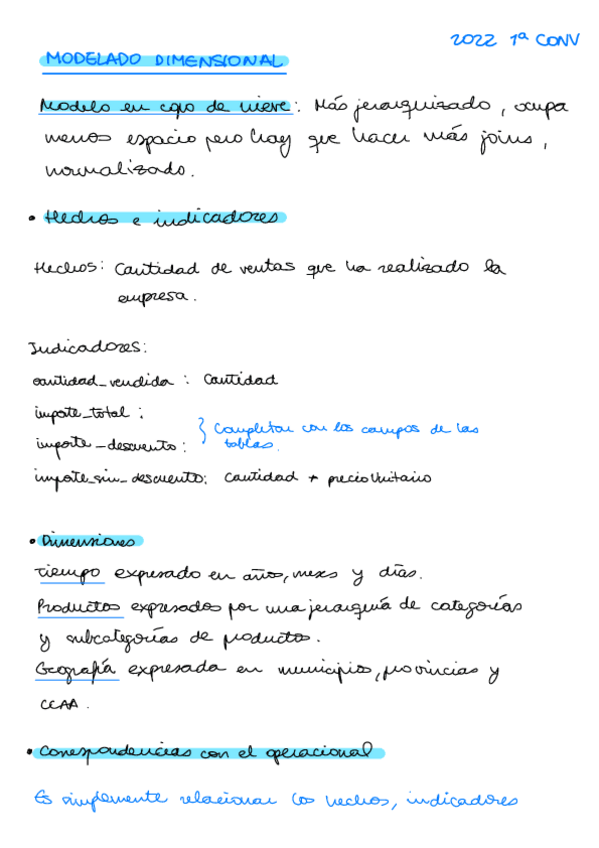 2022 1ª CONV
MODELADO DIMENSIONAL
Modelo en copo de nieve: Más jerarquizado, ocupa
menos espacio pero hay que hacer más joins,
normalizado.
• Hechos e indicadores
Hechos: Cantidad de ventas que ha realizado la
empresa.
Indicadores:
cantidad_vendida : Cantidad
importe_total :
} Completar con los campos de las
importe_descuento: tablas.
importe_sin_descuento: Cantidad * precioUnitario
• Dimensiones
Tiempo expresado en años, meses y días.
Productos expresados por una jerarquía de categorías
y subcategorías de productos.
Geografía expresada en municipios, provincias y
CCAA.
• Correspondencias con el operacional
Es simplemente relacionar los hechos, indicadores